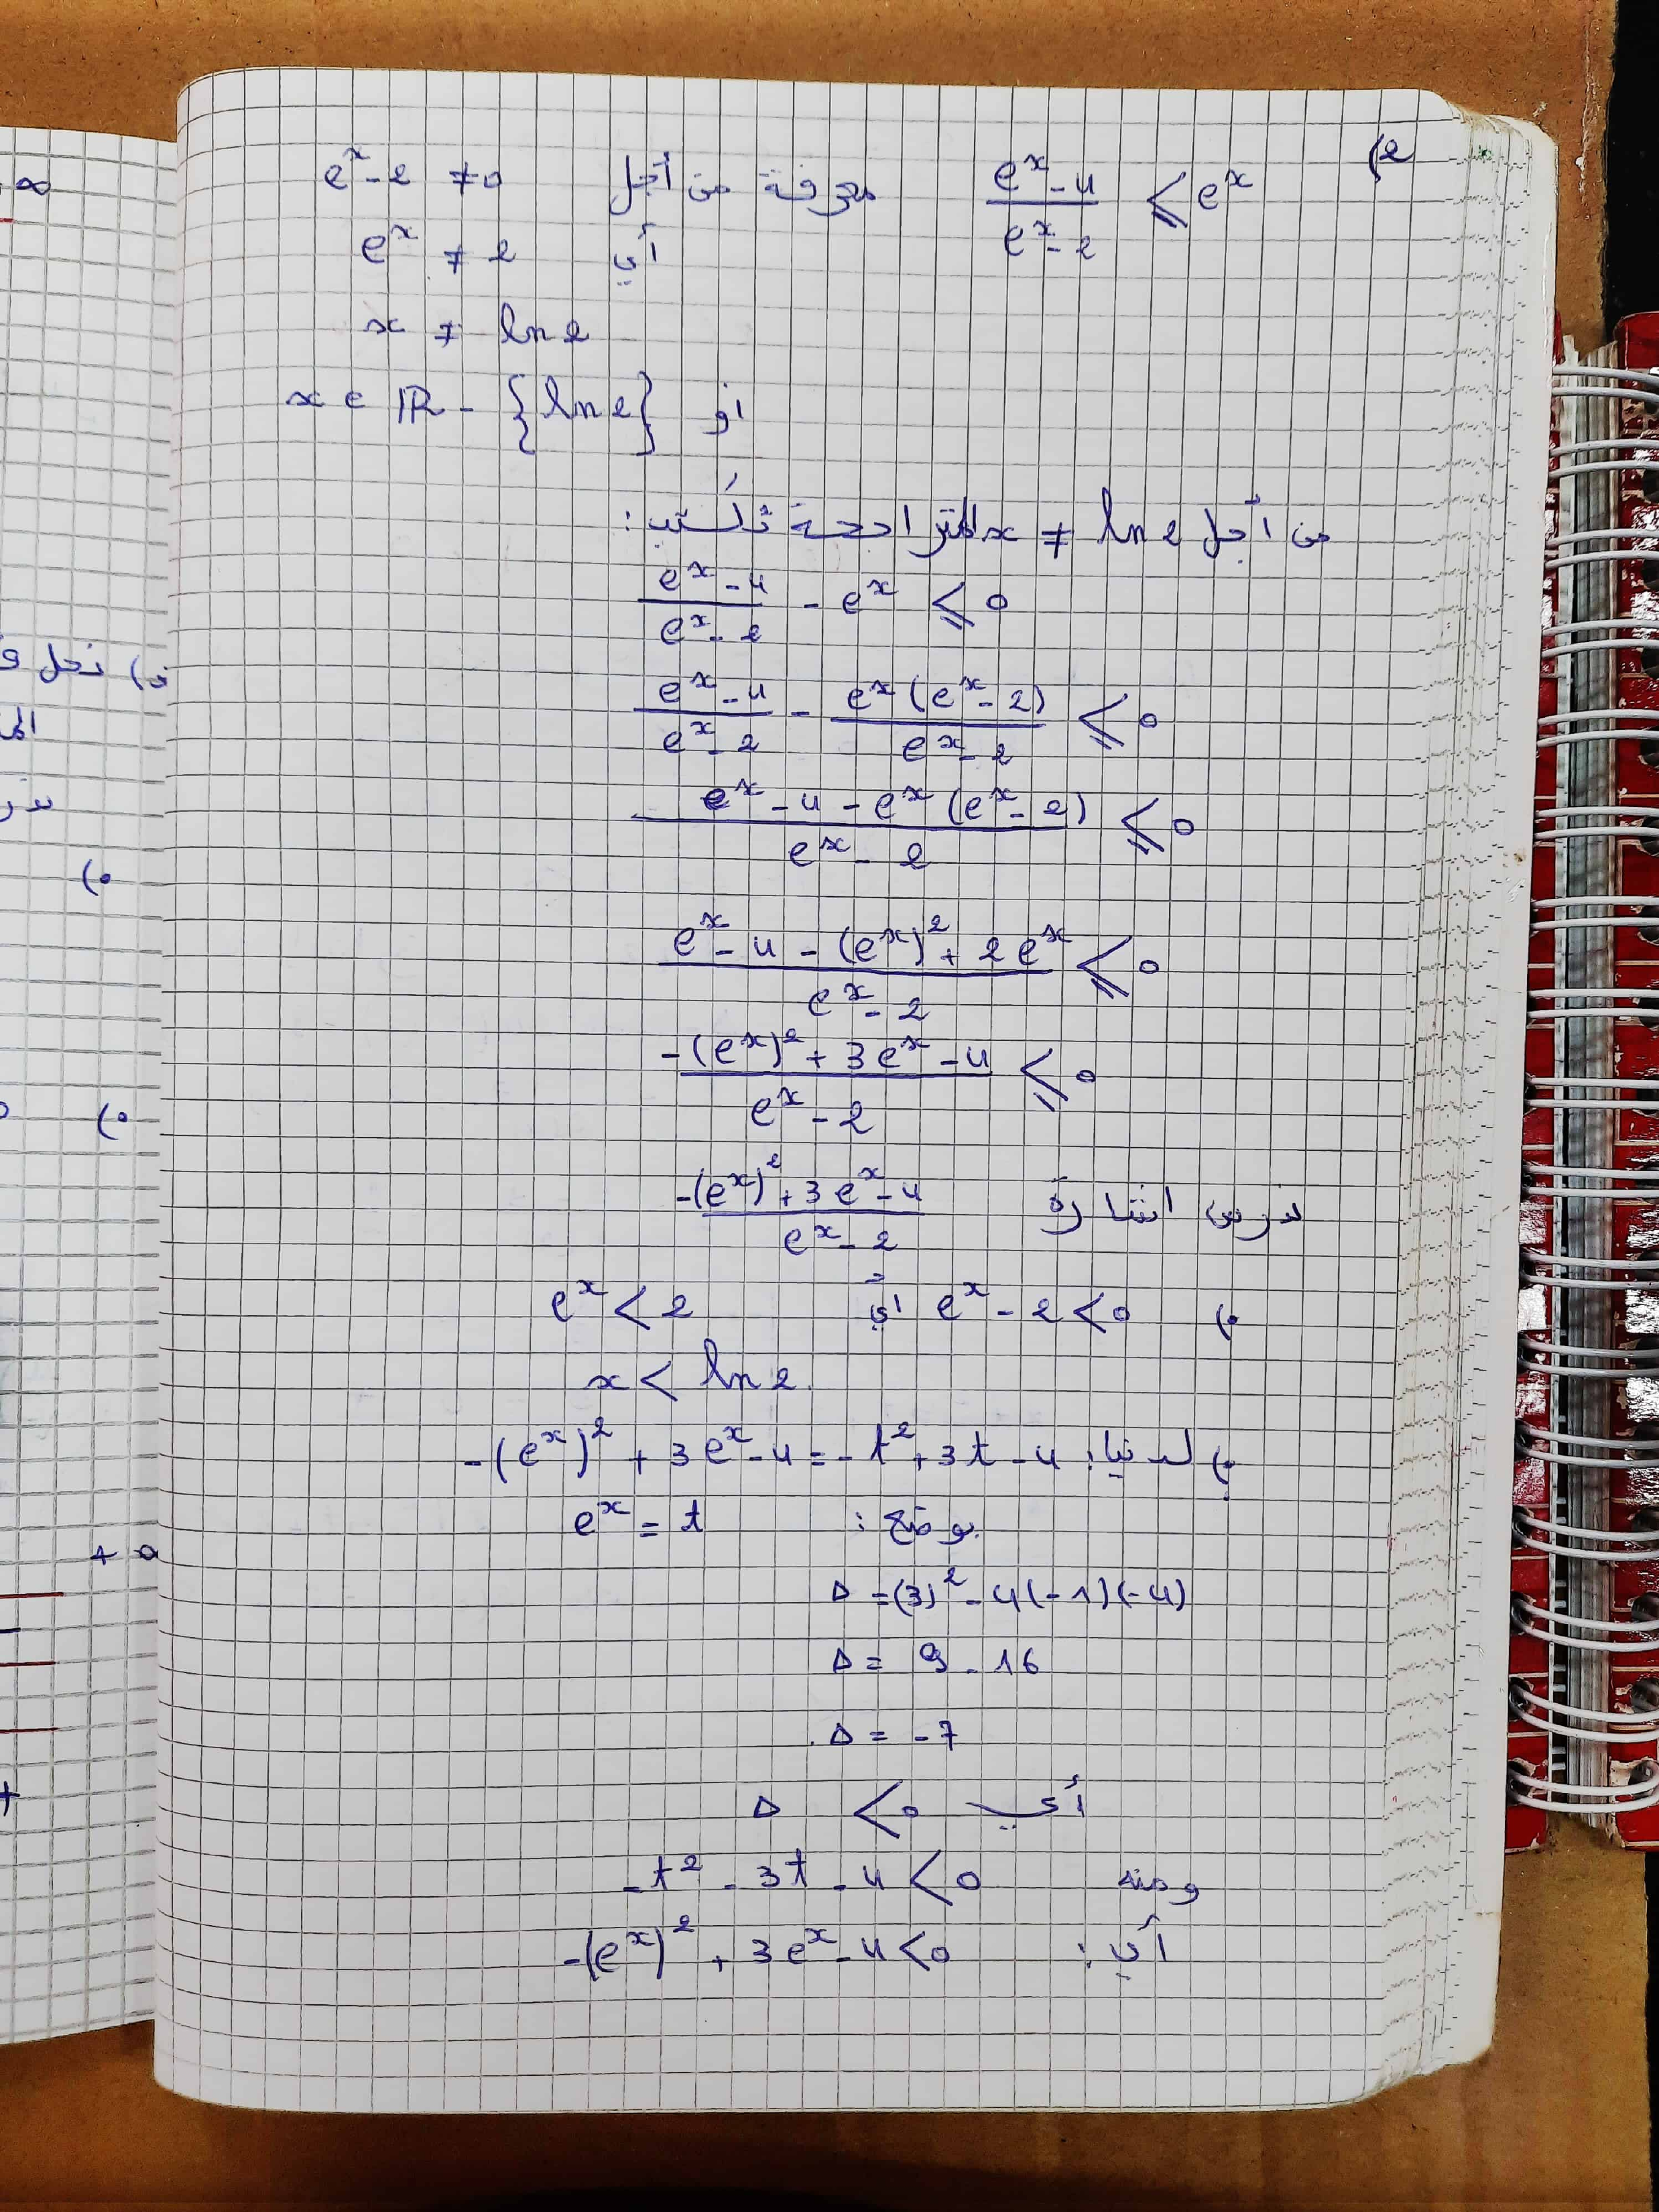 2) (e^x - 4)/(e^x - 2) ⩽ e^x معرفة من أجل e^x - 2 ≠ 0
أي e^x ≠ 2
x ≠ ln 2
او x ∈ ℝ - {ln 2}
من أجل x ≠ ln 2 المتراجحة تُكتب :
(e^x - 4)/(e^x - 2) - e^x ⩽ 0
(e^x - 4)/(e^x - 2) - e^x (e^x - 2)/(e^x - 2) ⩽ 0
(e^x - 4 - e^x (e^x - 2))/(e^x - 2) ⩽ 0
(e^x - 4 - (e^x)^2 + 2 e^x)/(e^x - 2) ⩽ 0
(-(e^x)^2 + 3 e^x - 4)/(e^x - 2) ⩽ 0
ندرس اشارة (-(e^x)^2 + 3 e^x - 4)/(e^x - 2)
•) e^x - 2 < 0 أي e^x < 2
x < ln 2
•) لدينا : -(e^x)^2 + 3 e^x - 4 = - t^2 + 3t - 4
بوضع : e^x = t
Δ = (3)^2 - 4(-1)(-4)
Δ = 9 - 16
Δ = -7
أي Δ < 0
ومنه -t^2 - 3t - 4 < 0
أي : -(e^x)^2 + 3 e^x - 4 < 0
∞
نحل
•)
•)
+ 0
+